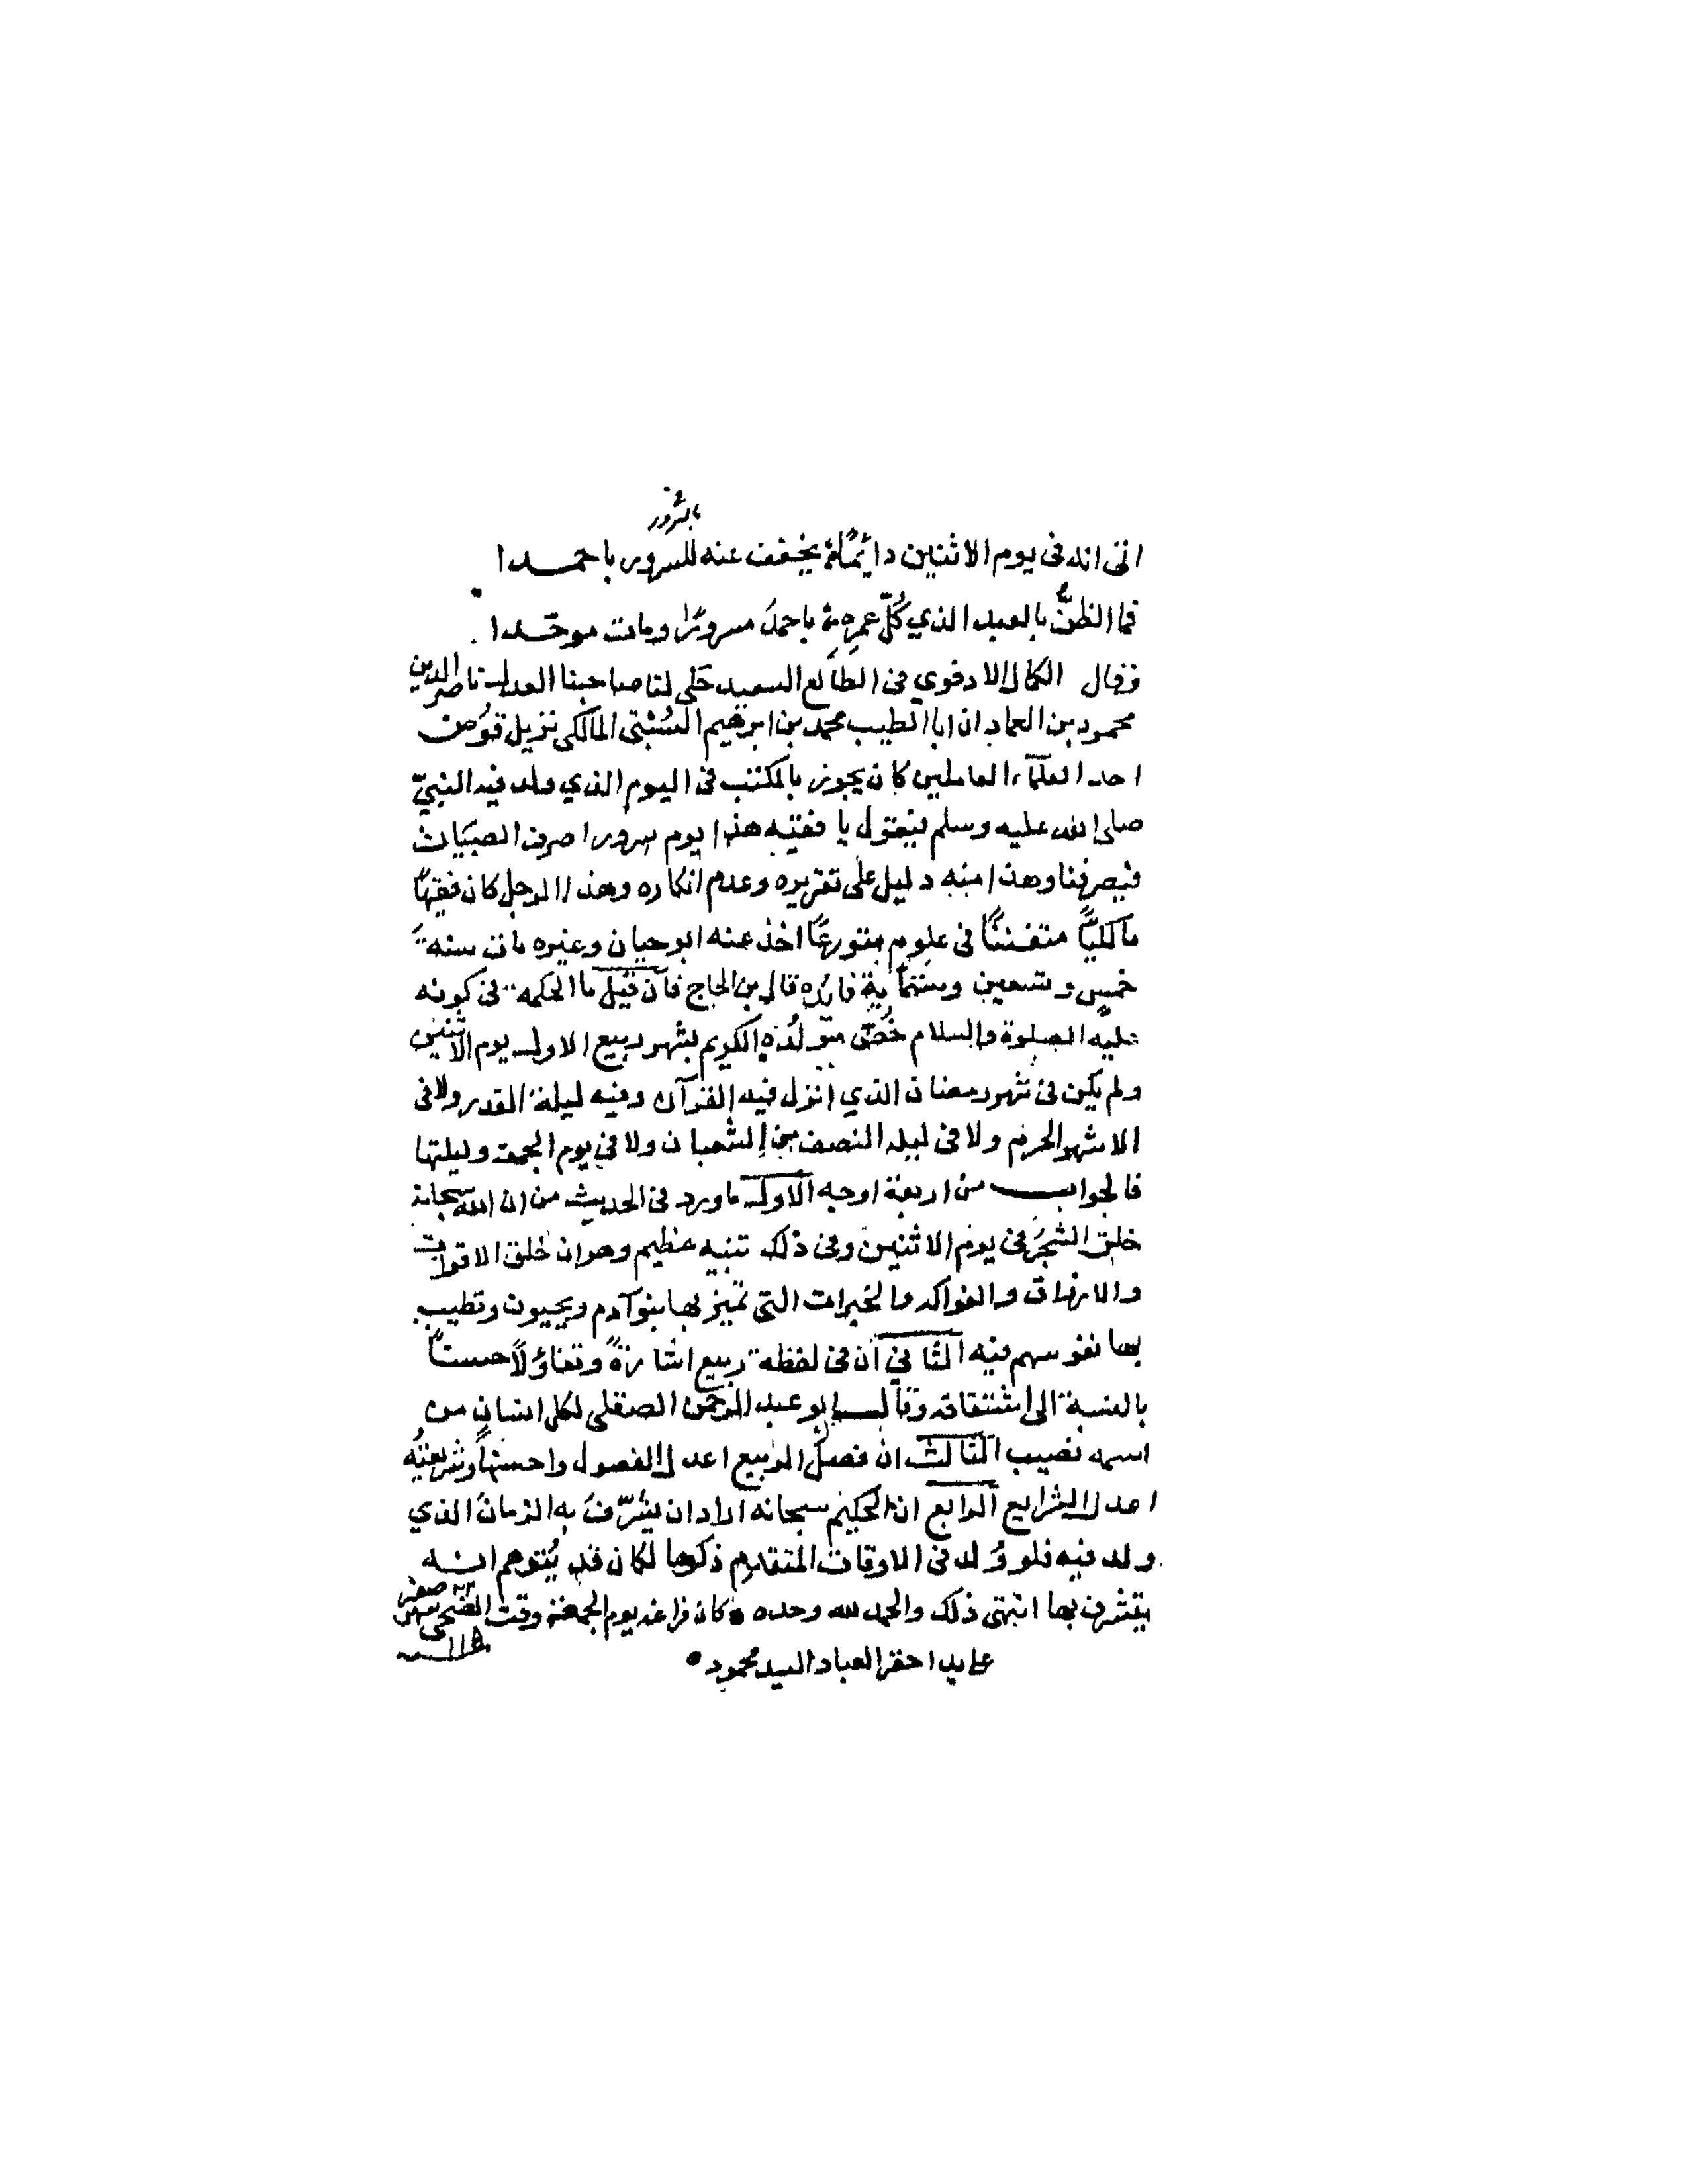 بالسرور
اتى انه فى يوم الاثنين دائمًا يخفف عنه للسرور باحمدا
فما الظنُّ بالعبد الذي كُلّ عمرِهِ باحمدَ مسرورًا ومات موحّدا
وقال الكمال الادفوي فى الطالع السعيد حَكى لنا صاحبنا العدل ناصر الدين
محمود بن العماد ان ابا الطيب محمد بن ابرهيم السُبْتى المالكى نزيل قوُص
احد العلمآء العاملين كان يجوز بالمكتب فى اليوم الذي ولد فيه النبيّ
صلى الله عليه وسلم فيقول يا فقيه هذا يوم سرور اصرف الصبيان
فيصرفنا وهذا منه دليل على تقريره وعدم انكاره وهذا الرجل كان فقيهًا
مالكيًّا متفننًا فى علوم متورعًا اخذ عنه ابو حيان وغيره مات سنة
خمس وتسعين وستمآية فائده قال بن الحاج فآن قيل ما الحكمة فى كونه
عليه الصلوة والسلام خُصّ مولدُه الكريم بشهر ربيع الاول يوم الاثنين
ولم يكن فى شهر رمضان الذي انزل فيه القرآن وفيه ليلة القدر ولا فى
الاشهر الحرم ولا فى ليله النصف من الشعبان ولا فى يوم الجمعة وليلتها
فالجواب من اربعة اوجه الاول ما ورد فى الحديث من ان الله سبحانه
خلق الشجَر فى يوم الاثنين وفى ذلك تنبيه عظيم وهو ان خلق الاقوات
والارزاق والفواكه والخيرات التى تميز بها بنو آدم ويحيون وتطيب
بها نفوسهم فيه الثانى آن فى لفظة ربيع اشارةً وتفاؤلًا حسنًا
بالنسبة الى اشتقاقه وقال ابو عبد الرحمن الصقلى لكل انسان من
اسمه نصيب الثالث ان فصل الربيع اعدل الفصول واحسنها وشريعتُه
اعدل الشرايع الرابع ان الحكيم سبحانه اراد ان يشرّفَ به الزمانَ الذي
ولد فيه فلو وُلد فى الاوقات المتقدم ذكرها لكان قد يُتوهم انه
يتشرف بها انتهى ذلك والحمد لله وحده وكان فراغه يوم الجمعة وقت الضحى ٢٣ صفر
على يد احقر العباد السيد محمود